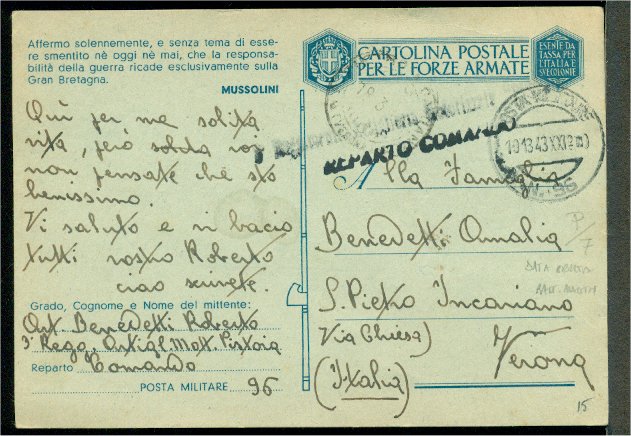 Affermo solennemente, e senza tema di esse-
re smentito nè oggi nè mai, che la responsa-
bilità della guerra ricade esclusivamente sulla
Gran Bretagna.
MUSSOLINI
Qui per me solita
vita, però solida voi
non pensate che stò
benissimo.
Vi saluto e vi bacio
tutti vostro Roberto
ciao scrivete.
Grado, Cognome e Nome del mittente:
Art. Benedetti Roberto
3° Regg. Artigl. Mot. Pistoia
Reparto Comando
POSTA MILITARE 96
CARTOLINA POSTALE
PER LE FORZE ARMATE
ESENTE DA
TASSA PER
L'ITALIA E
SUE COLONIE
REPARTO COMANDO
19 1 3 43 XXI
Alla Famiglia
Benedetti Amalia
S. Pietro Incariano
Via Chiesa)
Verona
(Italia)
15